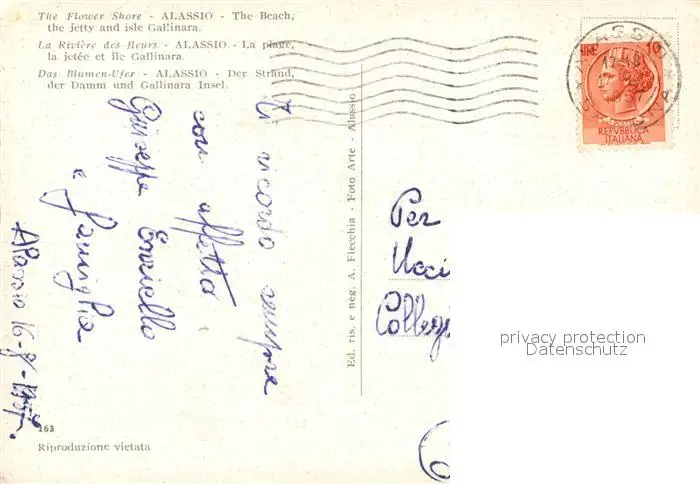 The Flower Shore - ALASSIO - The Beach,
the jetty and isle Gallinara.
La Rivière des fleurs - ALASSIO - La plage,
la jetée et ile Gallinara.
Das Blumen-Ufer - ALASSIO - Der Strand,
der Damm und Gallinara Insel.
Ti ricordo sempre
con affetto
Giuseppe Enrichetta
e famiglia
Alassio 16-8-1957.
163
Riproduzione vietata
Ed. ris. e neg. A. Fiecchia - Foto Arte - Alassio
LIRE 10
REPVBBLICA
ITALIANA
ALASSIO
Per
Ucci
Colleg
privacy protection
Datenschutz